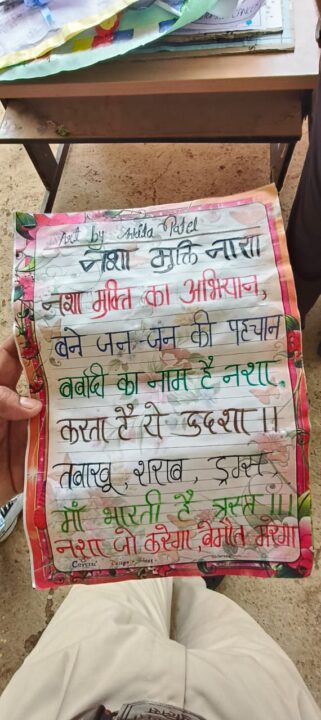 Art by Patel
नशा मुक्ति नारा
नशा मुक्ति का अभियान,
बने जन-जन की पहचान
बर्बादी का नाम है नशा,
करता है ये दुदशा।।
तबाखू, शराब, ड्रग्स,
माँ भारती है त्रस्त।।।
नशा जो करेगा, बेमौत मरेगा